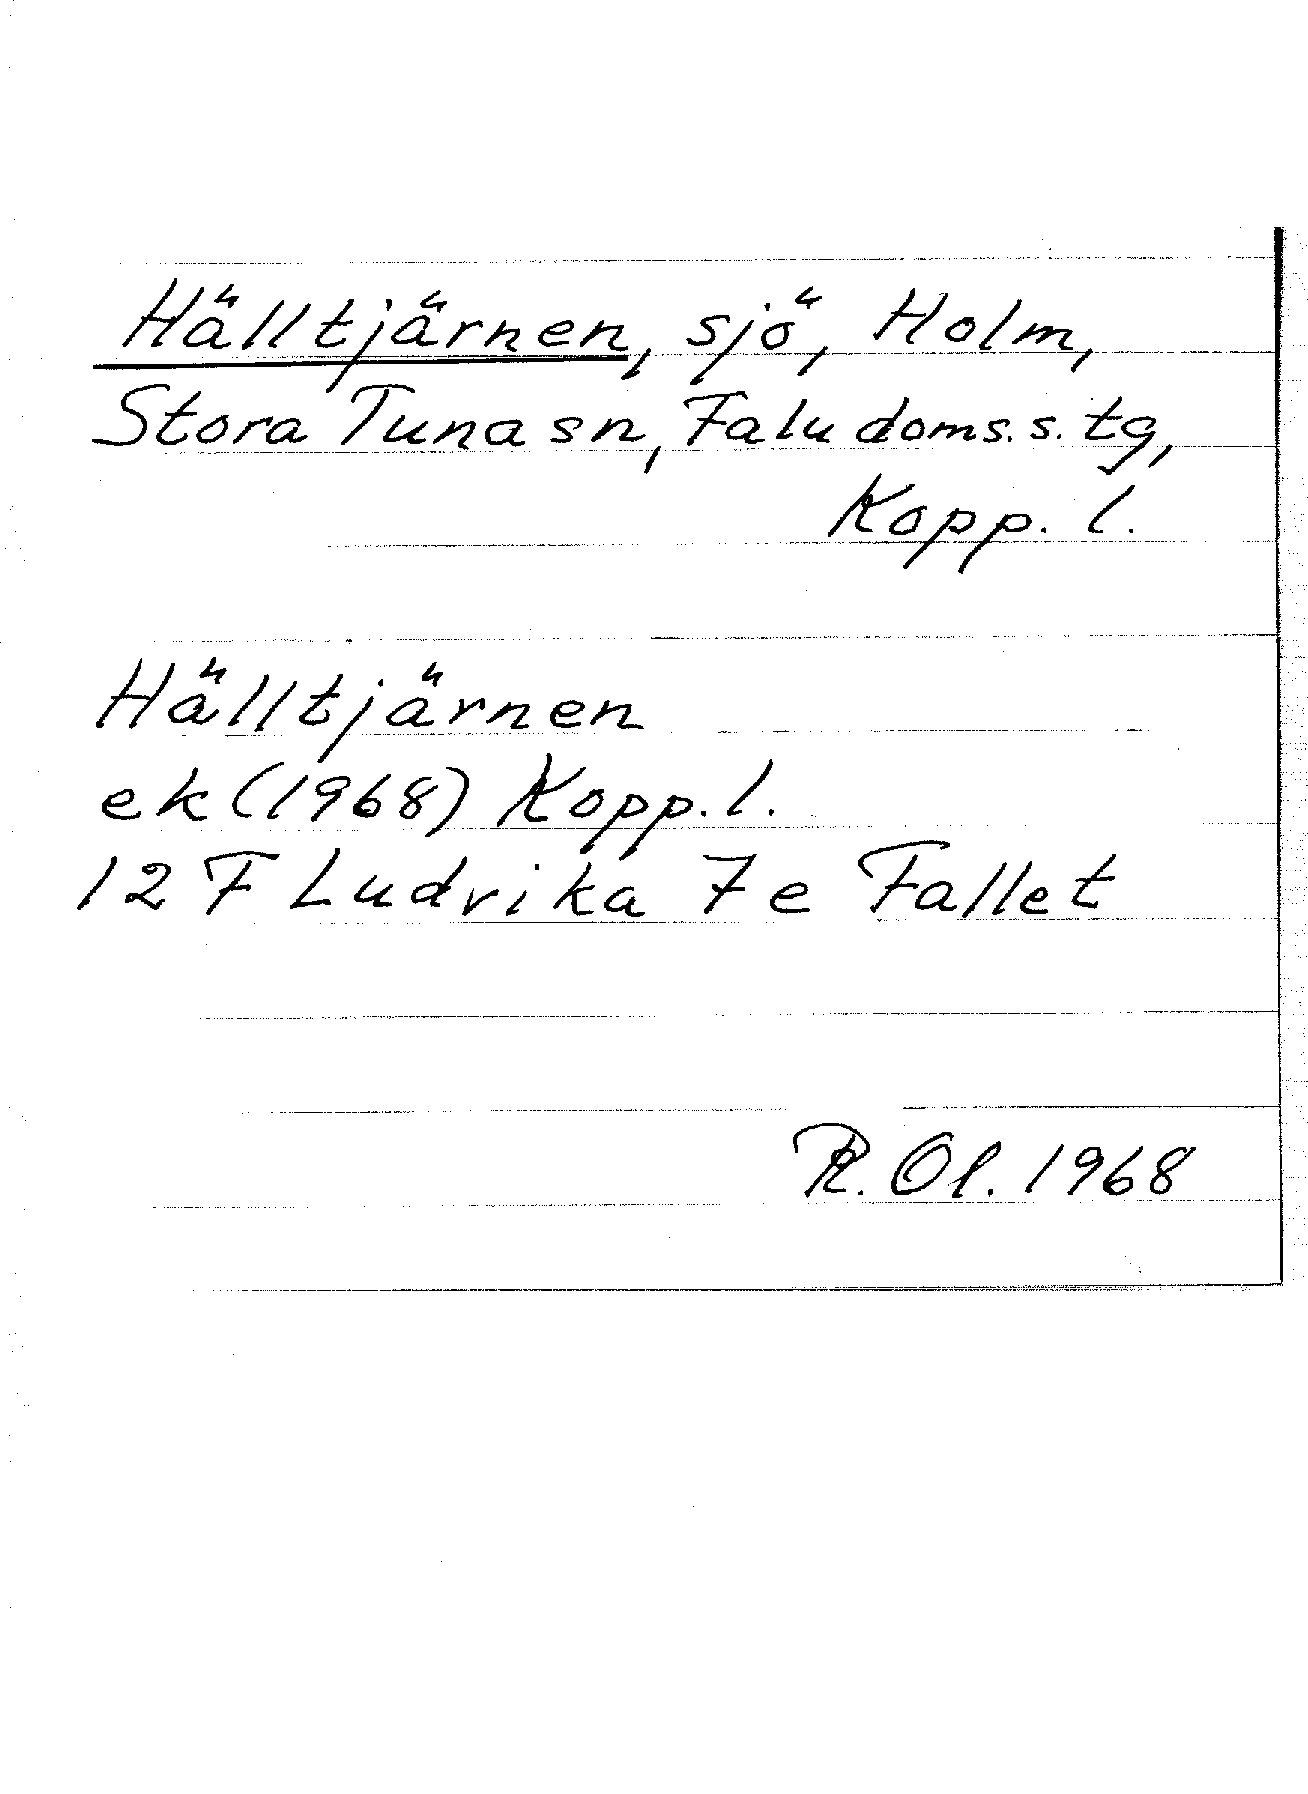 Hälltjärnen, sjö, Holm,
Stora Tuna sn, Falu doms. s. tg,
Kopp. l.
Hälltjärnen
ek (1968) Kopp. l.
12 F Ludvika 7 e Fallet
R. Ol. 1968